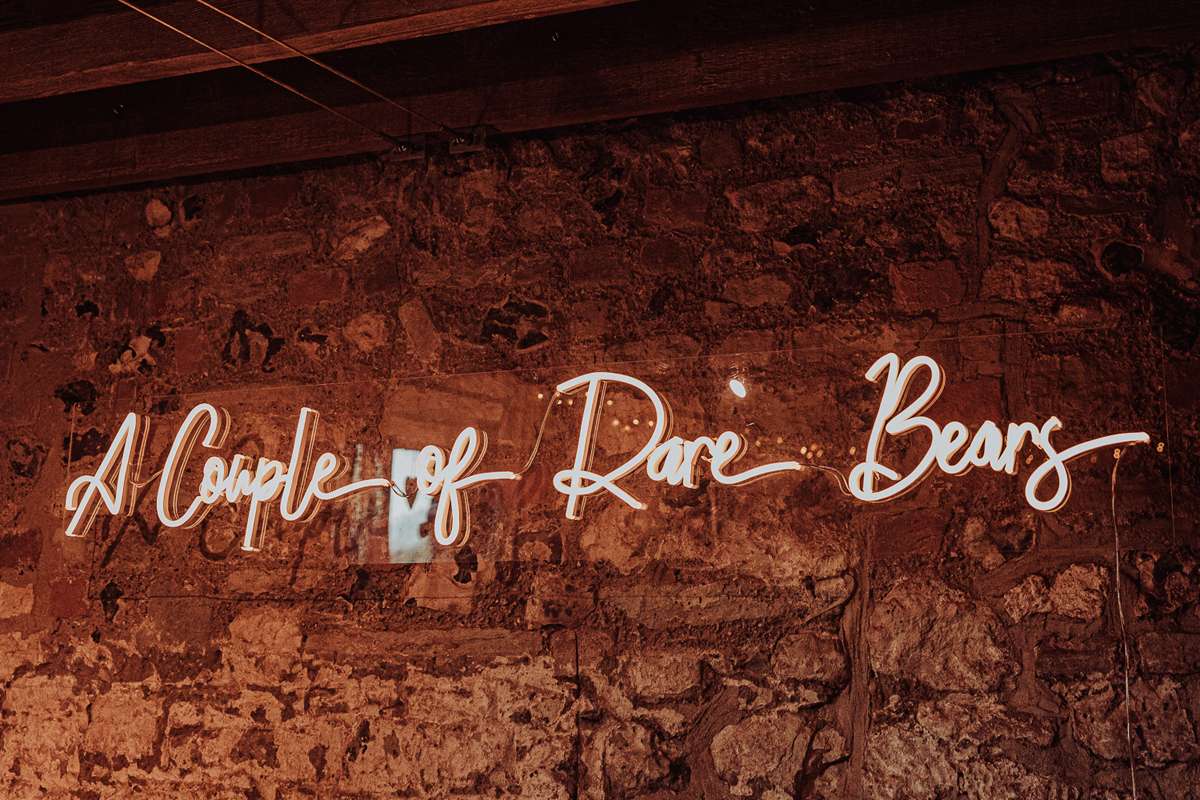 A Couple of Rare Bears